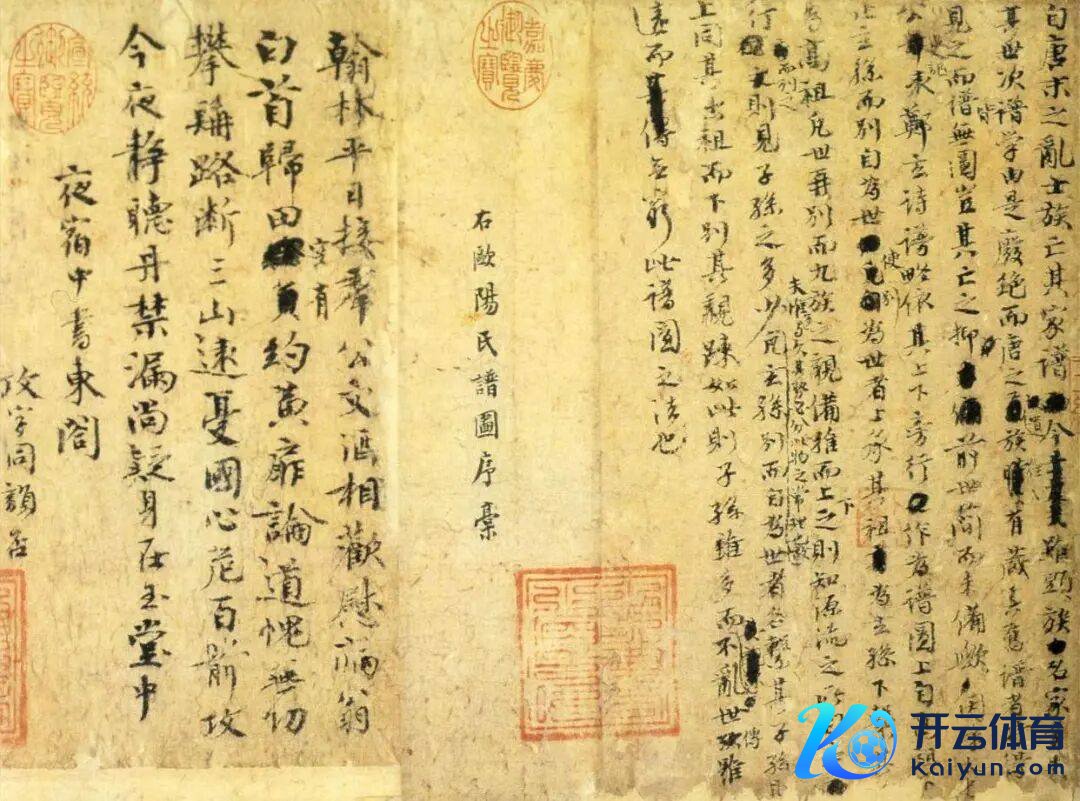 自唐末之亂士族亡其家譜今雖顯族名家
其世次譜學由是廢絕而唐之遺族往往有藏其舊譜者
見之而譜皆無圖豈其亡之抑前世簡而未備歟因
公史記表鄭玄詩譜略依其上下旁行作為譜圖上自
止玄孫而別自為世使別為世者上承其祖為玄孫下
為高祖凡世再別而九族之親備推而上下之則知源流之
行而列之則見子孫之多少夫惟多與久其勢必分此物之常理也凡玄孫別而自為世者各繫其子孫
上同其出祖而下別其親疎如此則子孫雖多而不亂世傳雖
遠而無窮此譜圖之法也
右歐陽氏譜圖序稾
嘉慶御覽之寶
翰林平日接羣公文酒相歡慰病翁
白首歸田空有約黃扉論道愧無功
攀髯路斷三山遠憂國心危百箭攻
今夜靜聽丹禁漏尚疑身在玉堂中
夜宿中書東閣
攻字同韻否
宣統御覽之寶
开云体育
Kaiyun.com